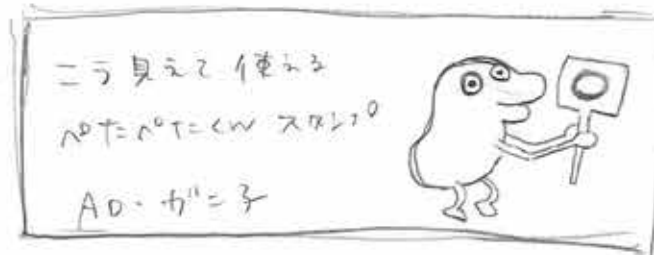 こう見えて使える
ペたペたくん スタンプ
AD・ガニ子